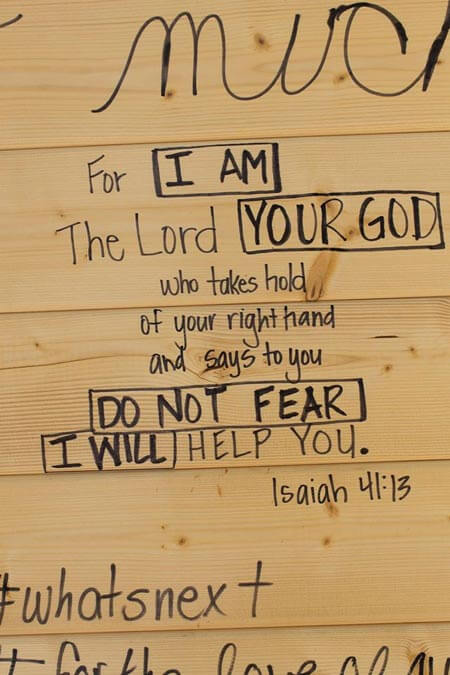 much
For I AM
The Lord YOUR GOD
who takes hold
of your right hand
and says to you
DO NOT FEAR
I WILL HELP YOU.
Isaiah 41:13
#whatsnext
for the love of